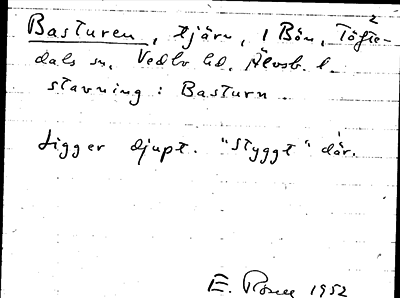 Basturen, tjärn, i Bön, Töfte-
dals sn, Vedbo hd, Älvsb. l.
stavning: Basturn.
Ligger djupt. "styggt" där.
E. 1952